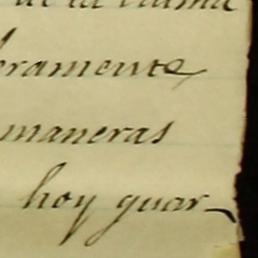 de la misma
eramente
maneras
hoy guar-